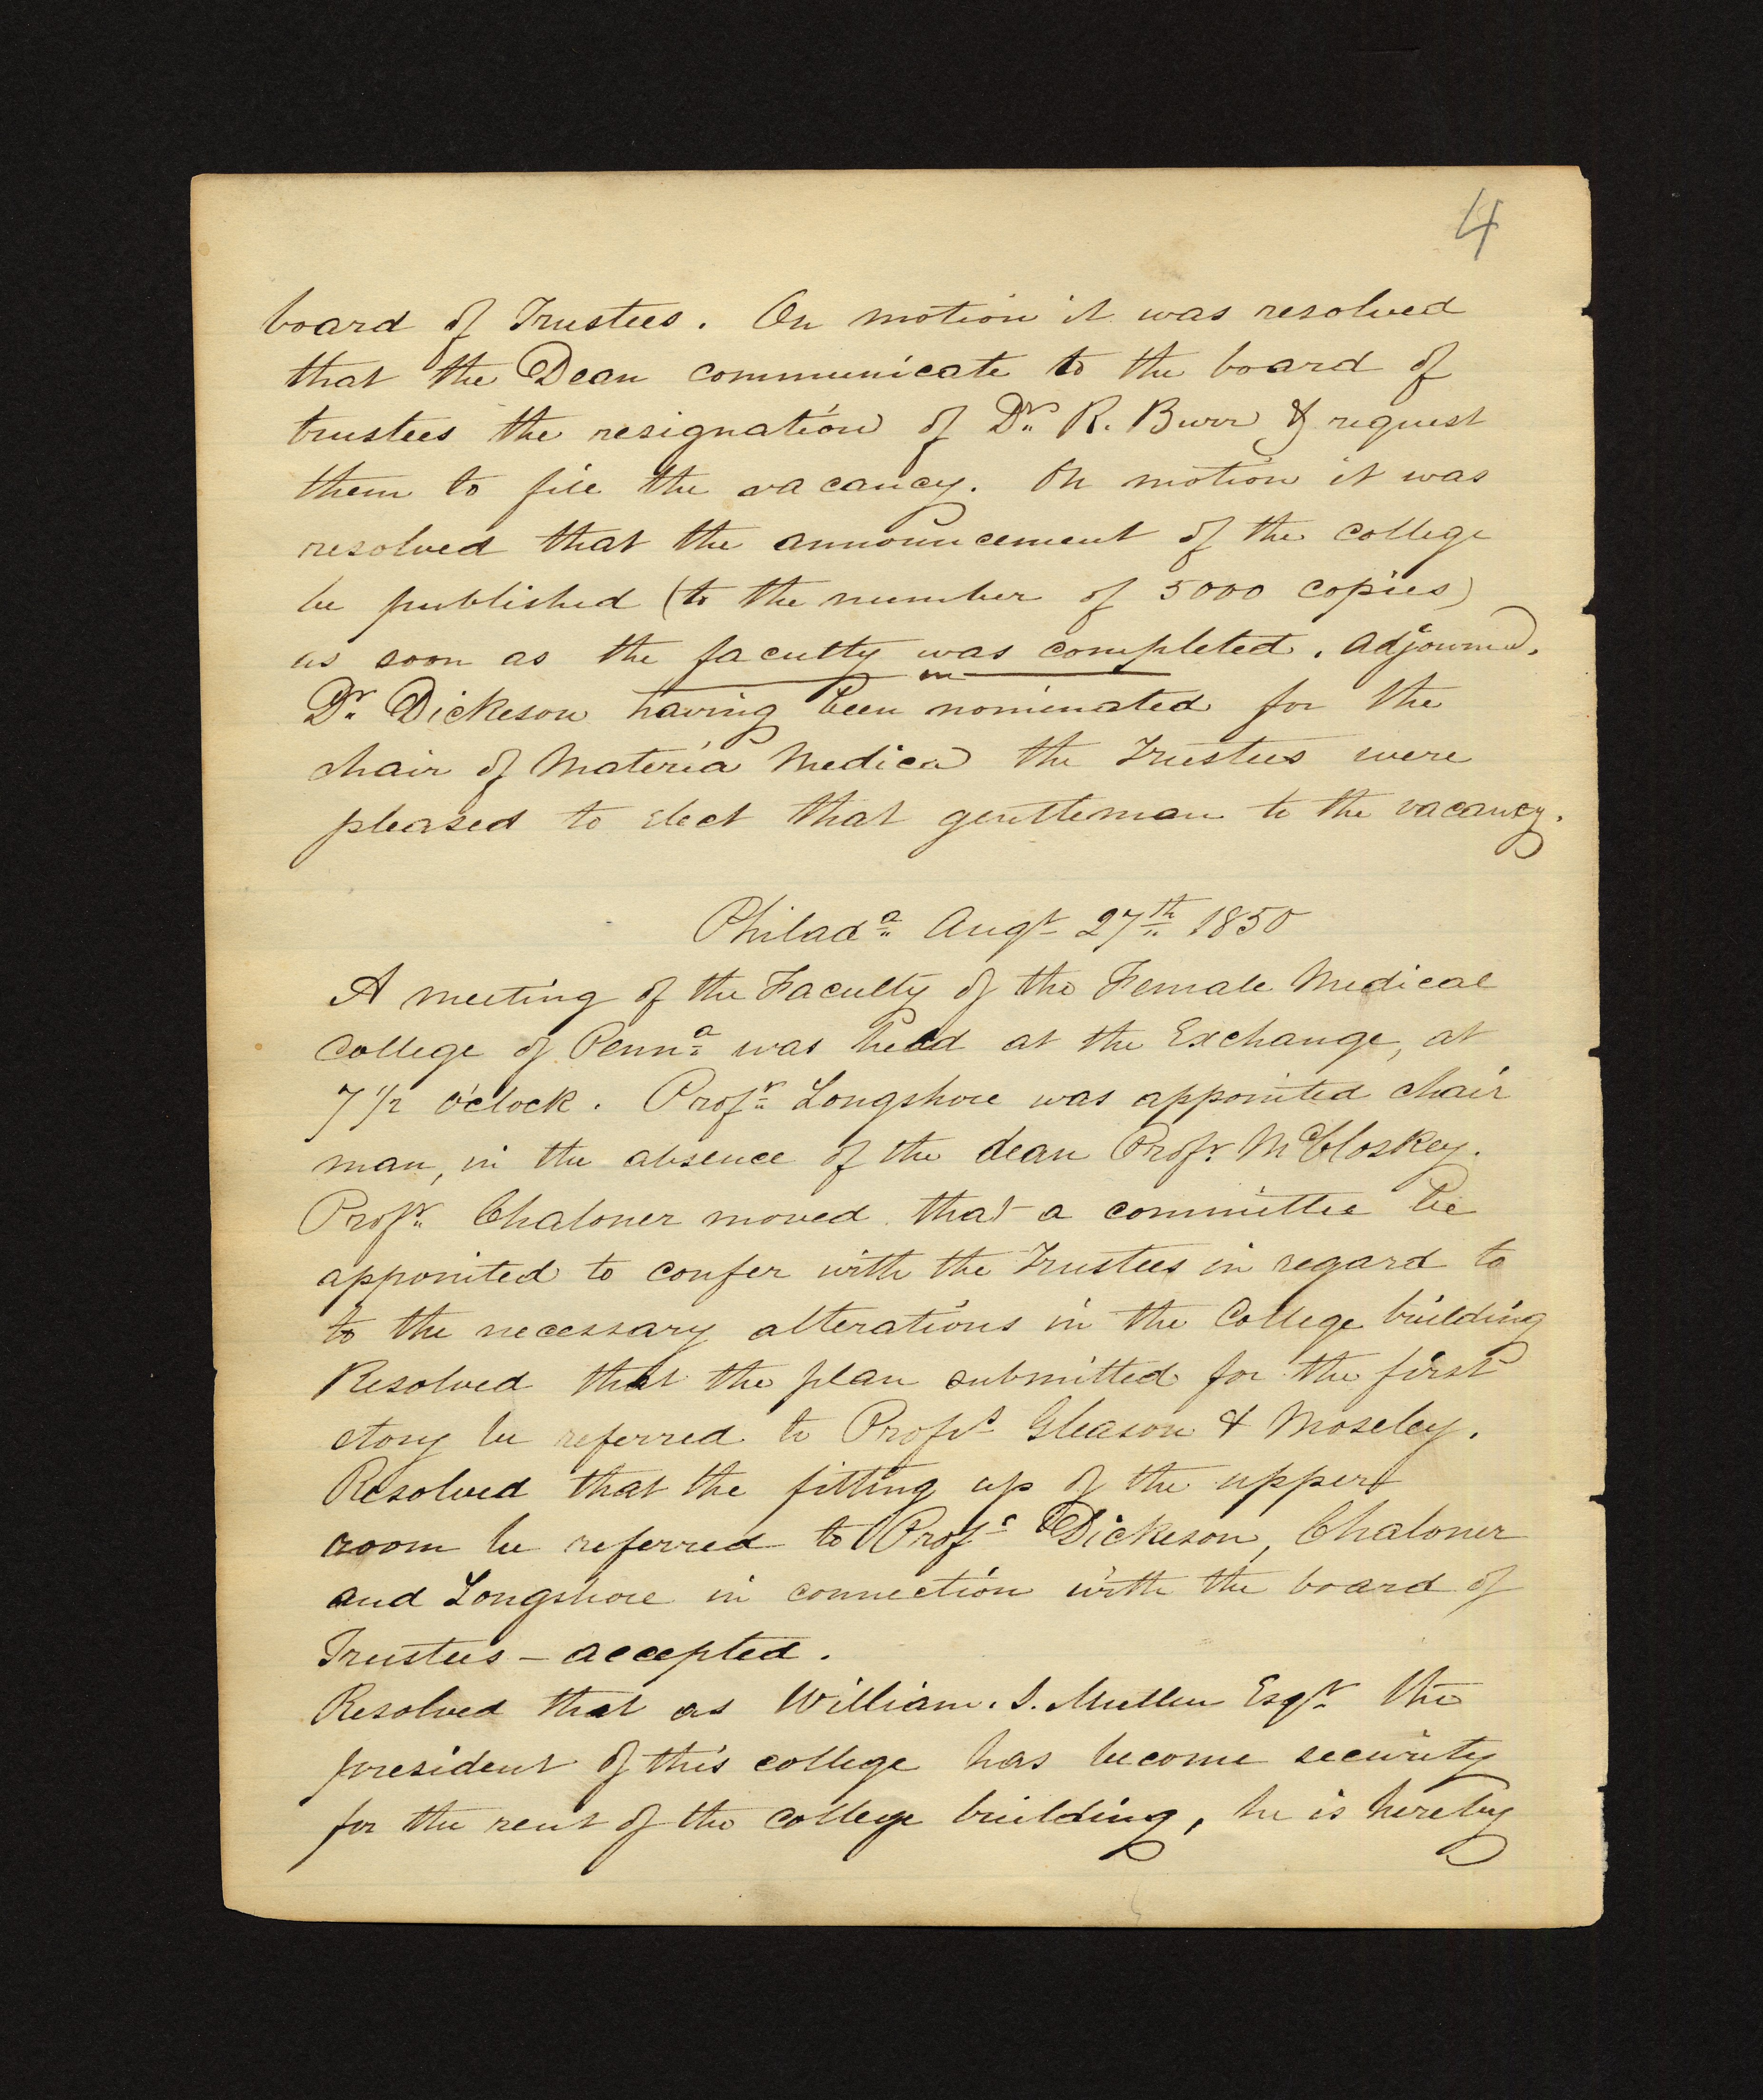 4
board of Trustees. On motion it was resolved
that the Dean communicate to the board of
trustees the resignation of Dr. R. Burr & request
them to fill the vacancy. On motion it was
resolved that the announcement of the college
be published (to the number of 5000 copies)
as soon as the faculty was completed. Adjourned.
Dr. Dickeson having been nominated for the
chair of Materia Medica the Trustees were
pleased to elect that gentleman to the vacancy.
Philada. Augt 27th 1850
A meeting of the Faculty of the Female Medical
College of Penna. was held at the Exchange, at
7 1/2 o'clock. Profr. Longshore was appointed chair
man, in the absence of the dean Profr. McCloskey.
Profr. Chaloner moved that a committee be
appointed to confer with the Trustees in regard to
to the necessary alterations in the College building
Resolved that the plan submitted for the first
story be referred to Profrs Gleason & Moseley.
Resolved that the fitting up of the upper
room be referred to Profs Dickeson, Chaloner
and Longshore in connection with the board of
Trustees - accepted.
Resolved that as William. J. Mullen Esqr. the
president of this college has become security
for the rent of the college building, he is hereby